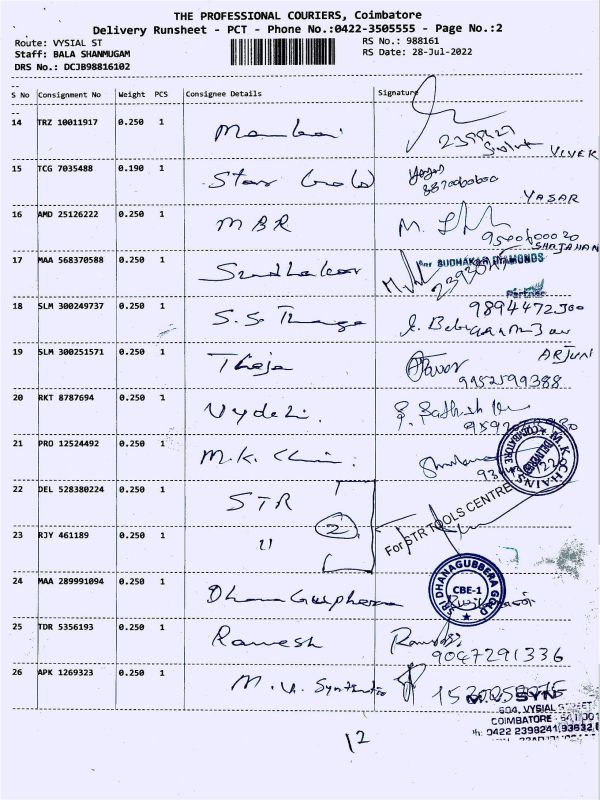 THE PROFESSIONAL COURIERS, Coimbatore
Delivery Runsheet - PCT - Phone No.:0422-3505555 - Page No.:2
Route: VYSIAL ST
RS No.: 988161
Staff: BALA SHANMUGAM
RS Date: 28-Jul-2022
DRS No.: DCJB98816102
S No Consignment No Weight PCS Consignee Details Signature
14 TRZ 10011917 0.250 1
VIVEK
15 TCG 7035488 0.190 1 Star Gold
YASAR
16 AMD 25126222 0.250 1 MBR
SHAJAHAN
17 MAA 568370588 0.250 1 Sudhakar
For SUDHAKAR DIAMONDS
Partner
18 SLM 300249737 0.250 1 S.S. Thanga
9894472300
19 SLM 300251571 0.250 1 Theja
ARJUN
9952599388
20 RKT 8787694 0.250 1
21 PRO 12524492 0.250 1 M.K. Chain
M.K.CHAINS
COIMBATORE
22 DEL 528380224 0.250 1 STR
For STR TOOLS CENTRE
23 RJY 461189 0.250 1 " 2
24 MAA 289991094 0.250 1
SRI DHANAGUBBERA GOLD
CBE-1
25 TDR 5356193 0.250 1 Ramesh
9047291336
26 APK 1269323 0.250 1 M.V. Synthetic
SYN
604, VYSIAL STREET
COIMBATORE - 641001
Ph: 0422 2398241, 93632
12